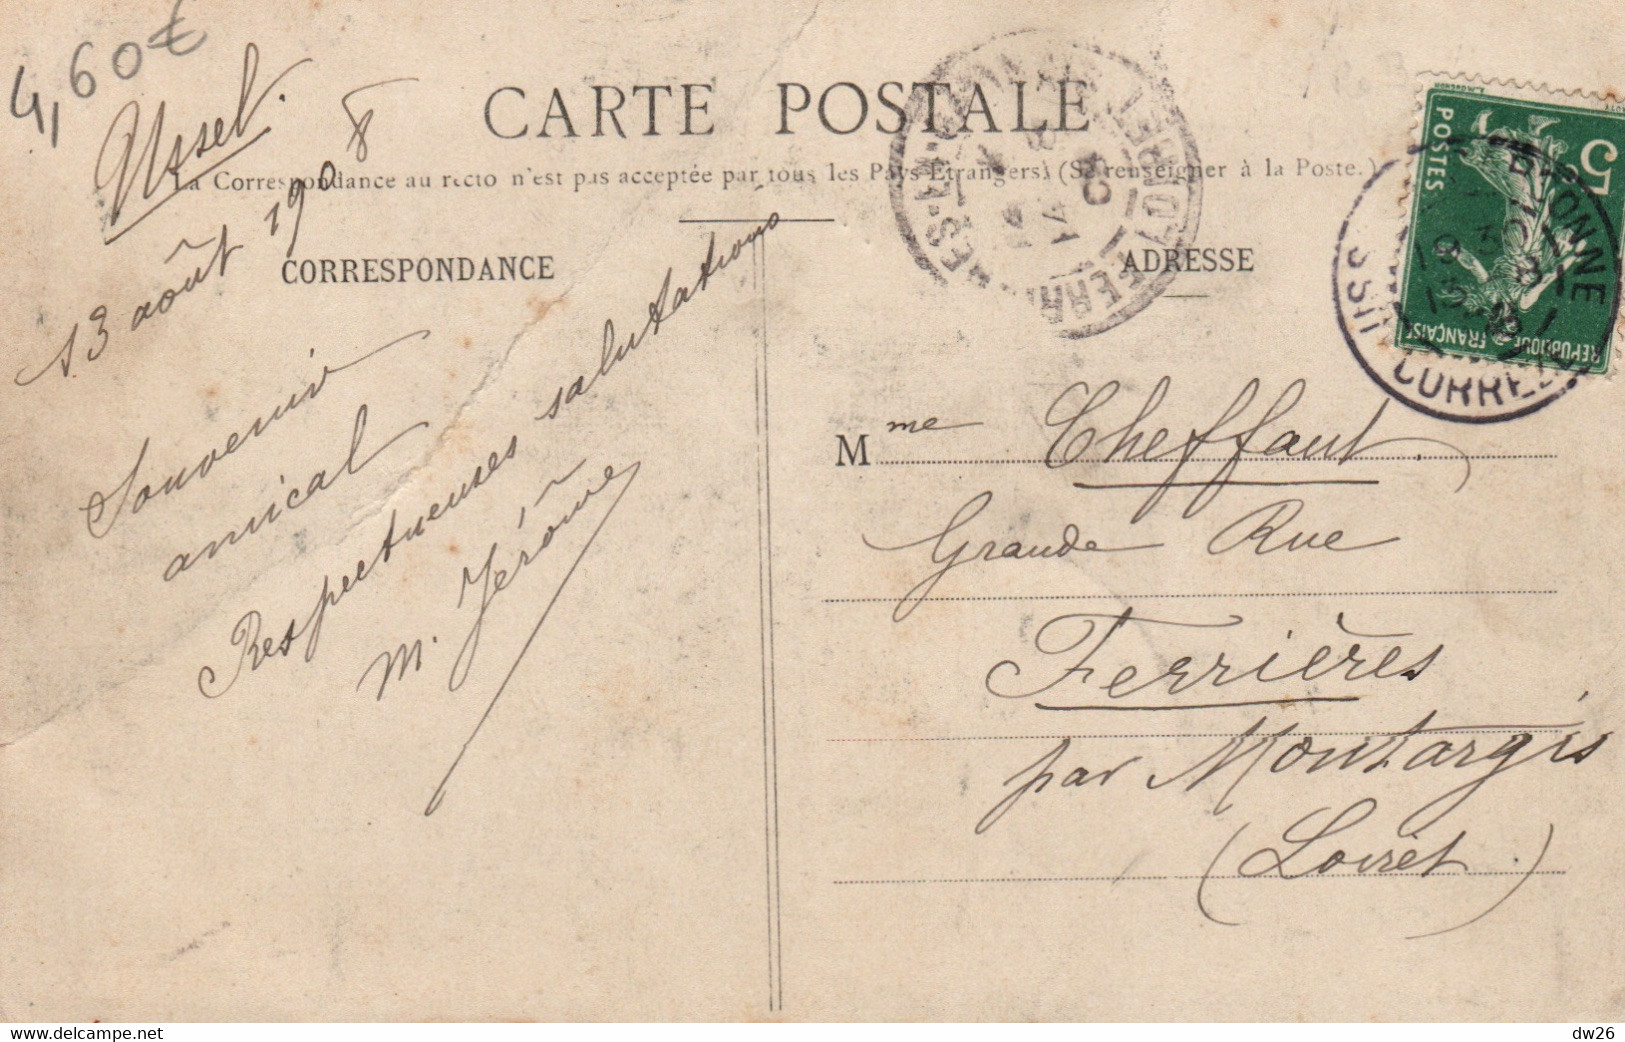 4,60€
Ussel.
13 août 1908
CARTE POSTALE
La Correspondance au recto n'est pas acceptée par tous les Pays Etrangers. (Se renseigner à la Poste.)
CORRESPONDANCE
Souvenir
amical
Respectueuses salutations
M. Jérôme
ADRESSE
Mme Cheffaut
Grande Rue
Ferrières
par Montargis
(Loiret)
5
POSTES
REPUBLIQUE FRANÇAISE
www.delcampe.net
dw26